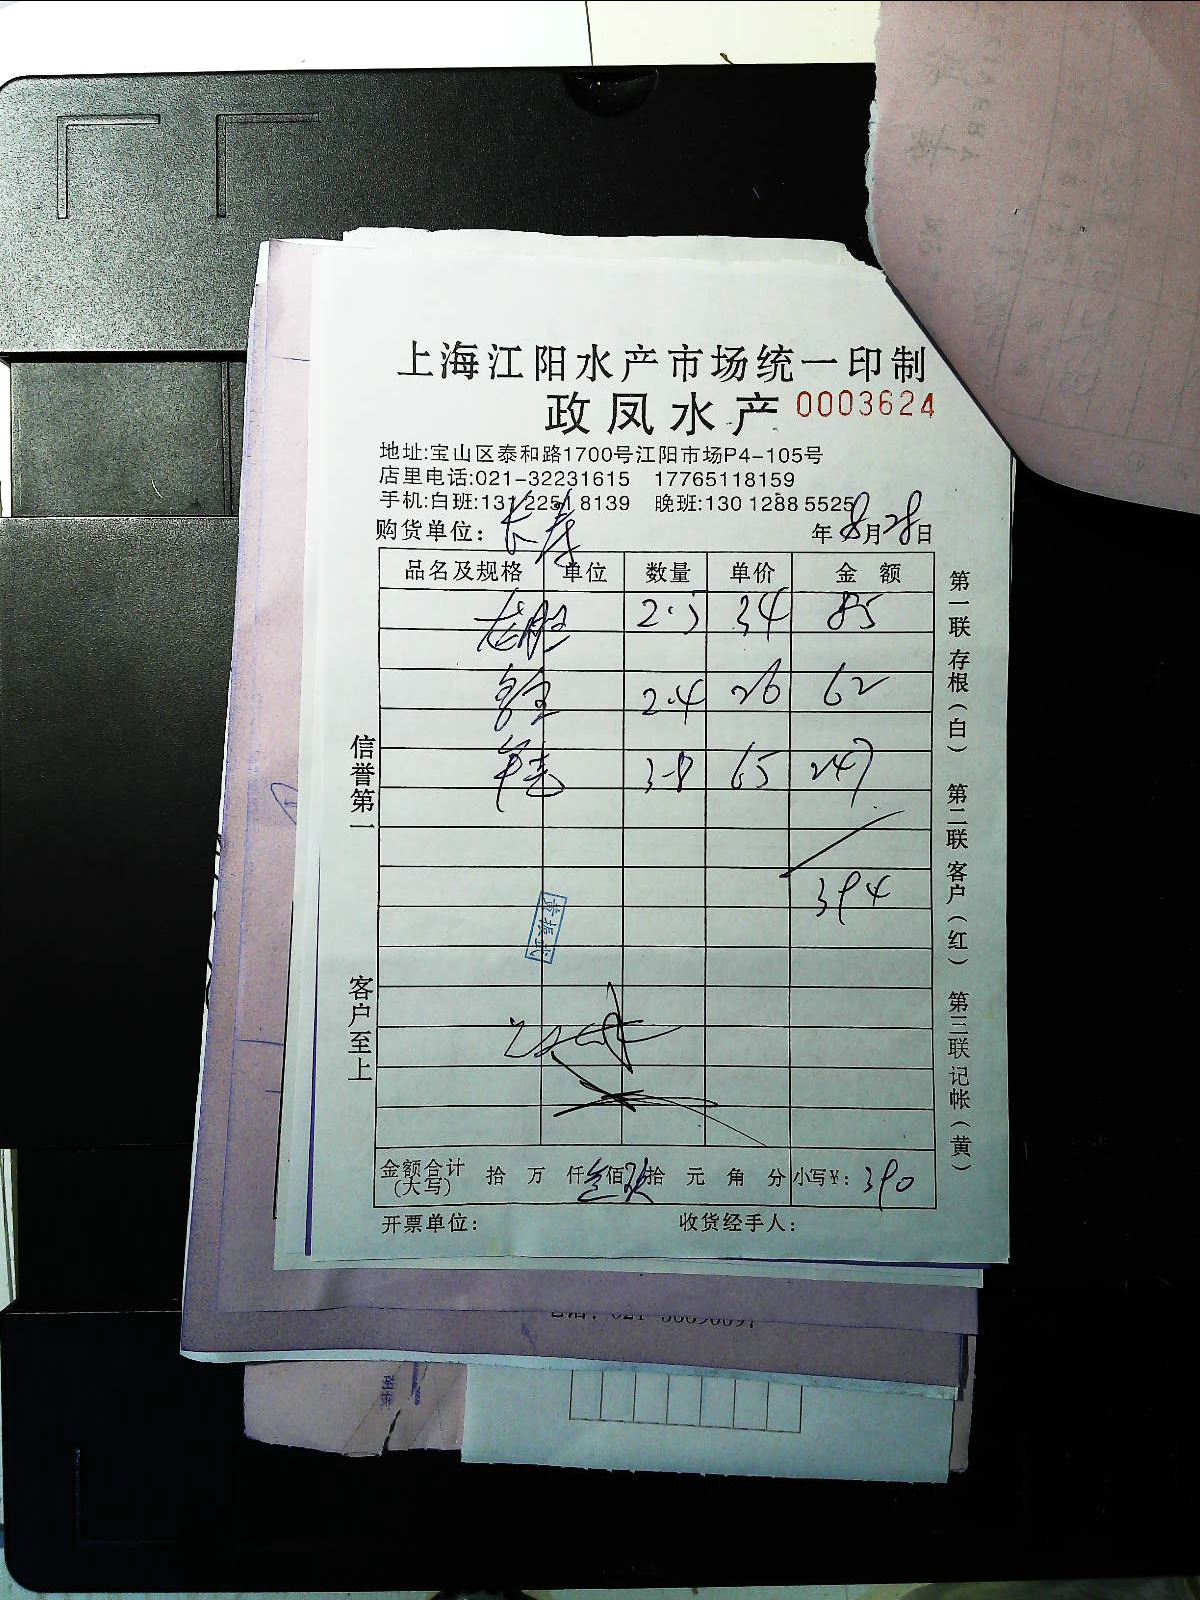 上海江阳水产市场统一印制
政凤水产 0003624
地址:宝山区泰和路1700号江阳市场P4-105号
店里电话:021-32231615 17765118159
手机:白班:131 2251 8139 晚班:130 1288 5525
购货单位: 长寿 年8月28日
品名及规格 单位 数量 单价 金额
2.5 34 85
2.4 26 62
3.8 65 247
394
金额合计(大写) 拾 万 仟 佰 拾 元 角 分 小写¥: 390
开票单位: 收货经手人:
信誉第一 客户至上
第一联 存根(白) 第二联 客户(红) 第三联 记帐(黄)